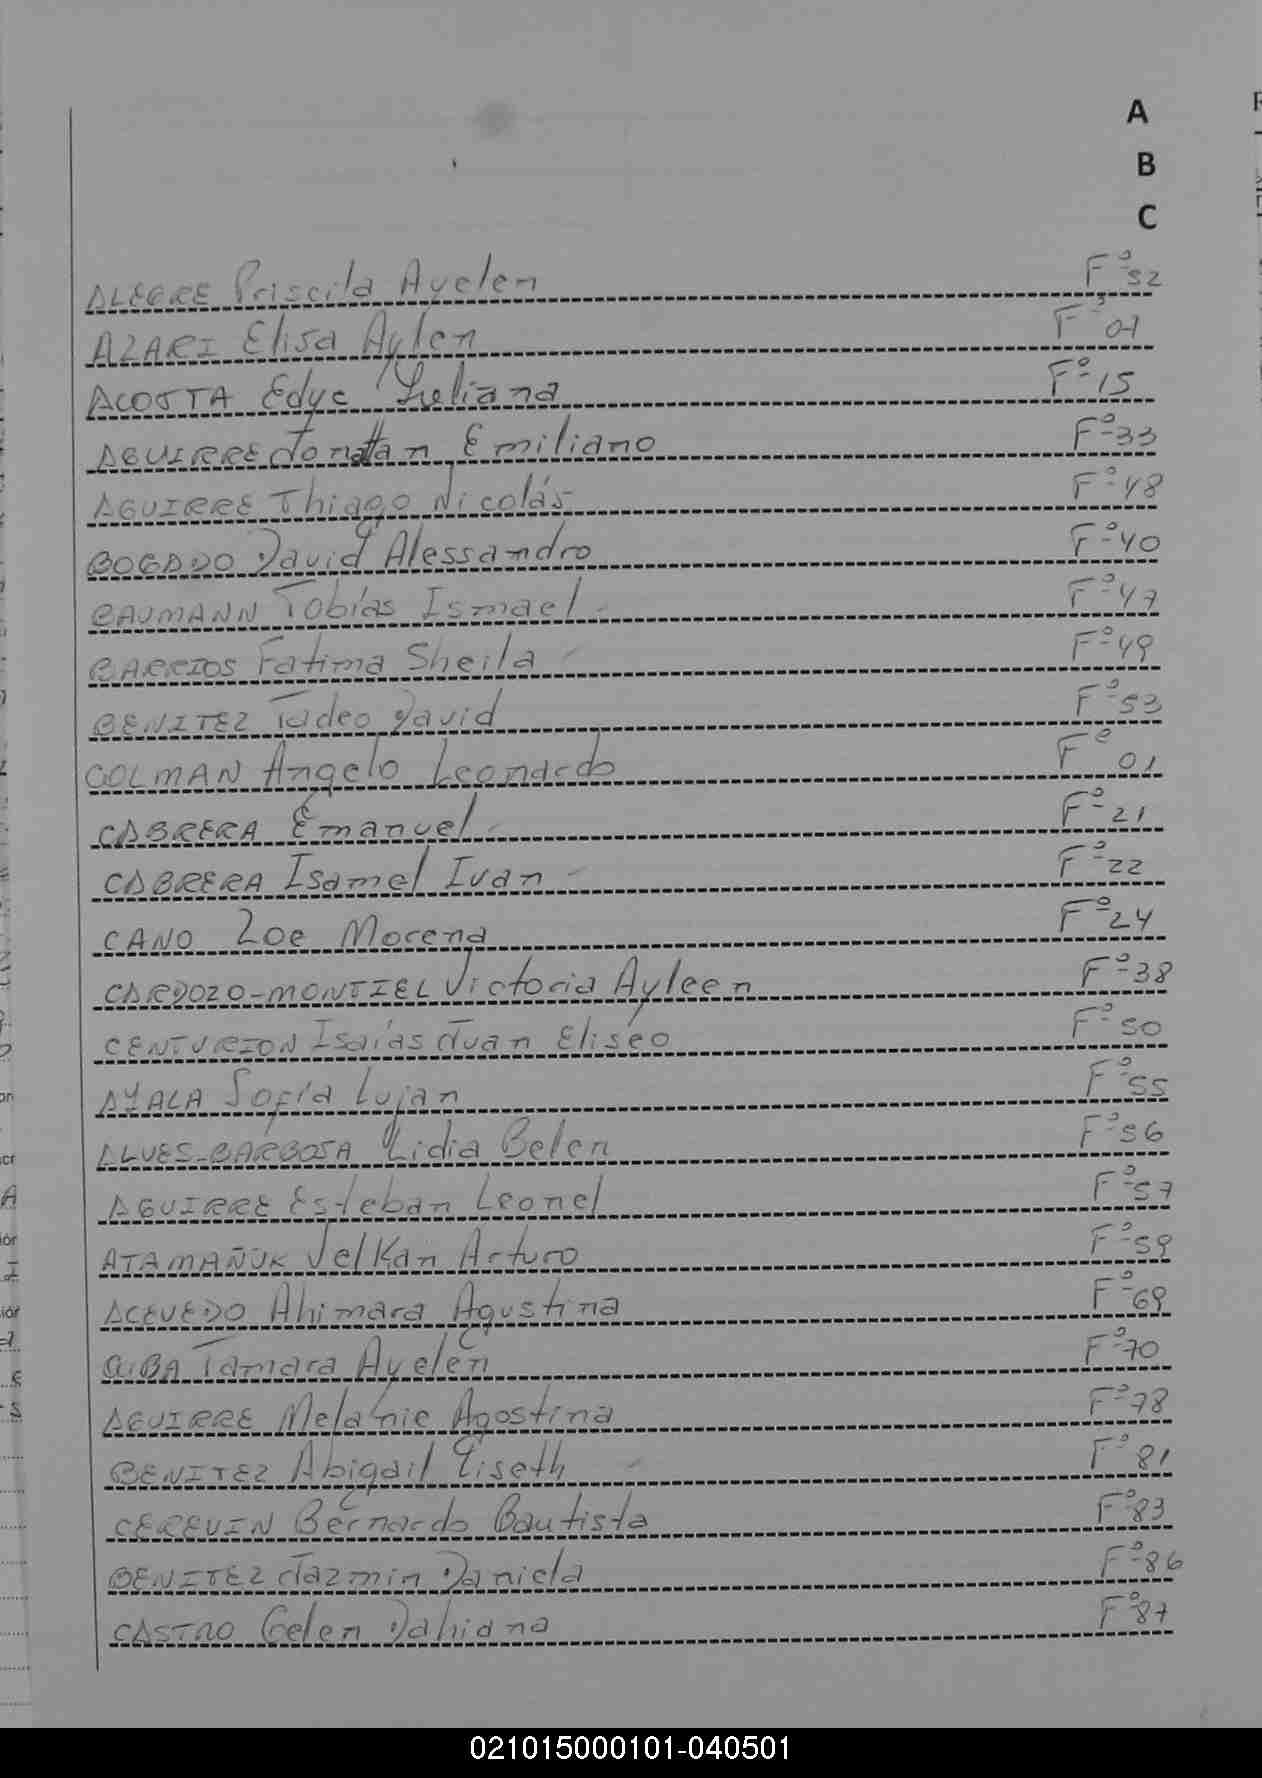 A
B
C
ALEGRE Priscila Ayelen Fº 52
AZARI Elisa Aylen Fº 07
ACOSTA Edyc Yuliana Fº 15
AGUIRRE Jonattan Emiliano Fº 33
AGUIRRE Thiago Nicolás Fº 48
BOGADO David Alessandro Fº 40
BAUMANN Tobías Ismael Fº 47
BARRIOS Fatima Sheila Fº 49
BENITEZ Tadeo David Fº 53
COLMAN Angelo Leonardo Fº 01
CABRERA Emanuel Fº 21
CABRERA Isamel Ivan Fº 22
CANO Zoe Morena Fº 24
CARDOZO-MONTIEL Victoria Ayleen Fº 38
CENTURION Isaías Juan Eliséo Fº 50
AYALA Sofía Lujan Fº 55
ALVES-BARBOSA Lidia Belen Fº 56
AGUIRRE Esteban Leonel Fº 57
ATAMAÑUK Jelkan Arturo Fº 59
ACEVEDO Ahimara Agustina Fº 69
Tamara Ayelén Fº 70
AGUIRRE Melanie Agostina Fº 78
BENITEZ Abigail Liseth Fº 81
CEREVIN Bernardo Bautista Fº 83
BENITEZ Jazmin Daniela Fº 86
CASTRO Celen Dahiana Fº 87
021015000101-040501